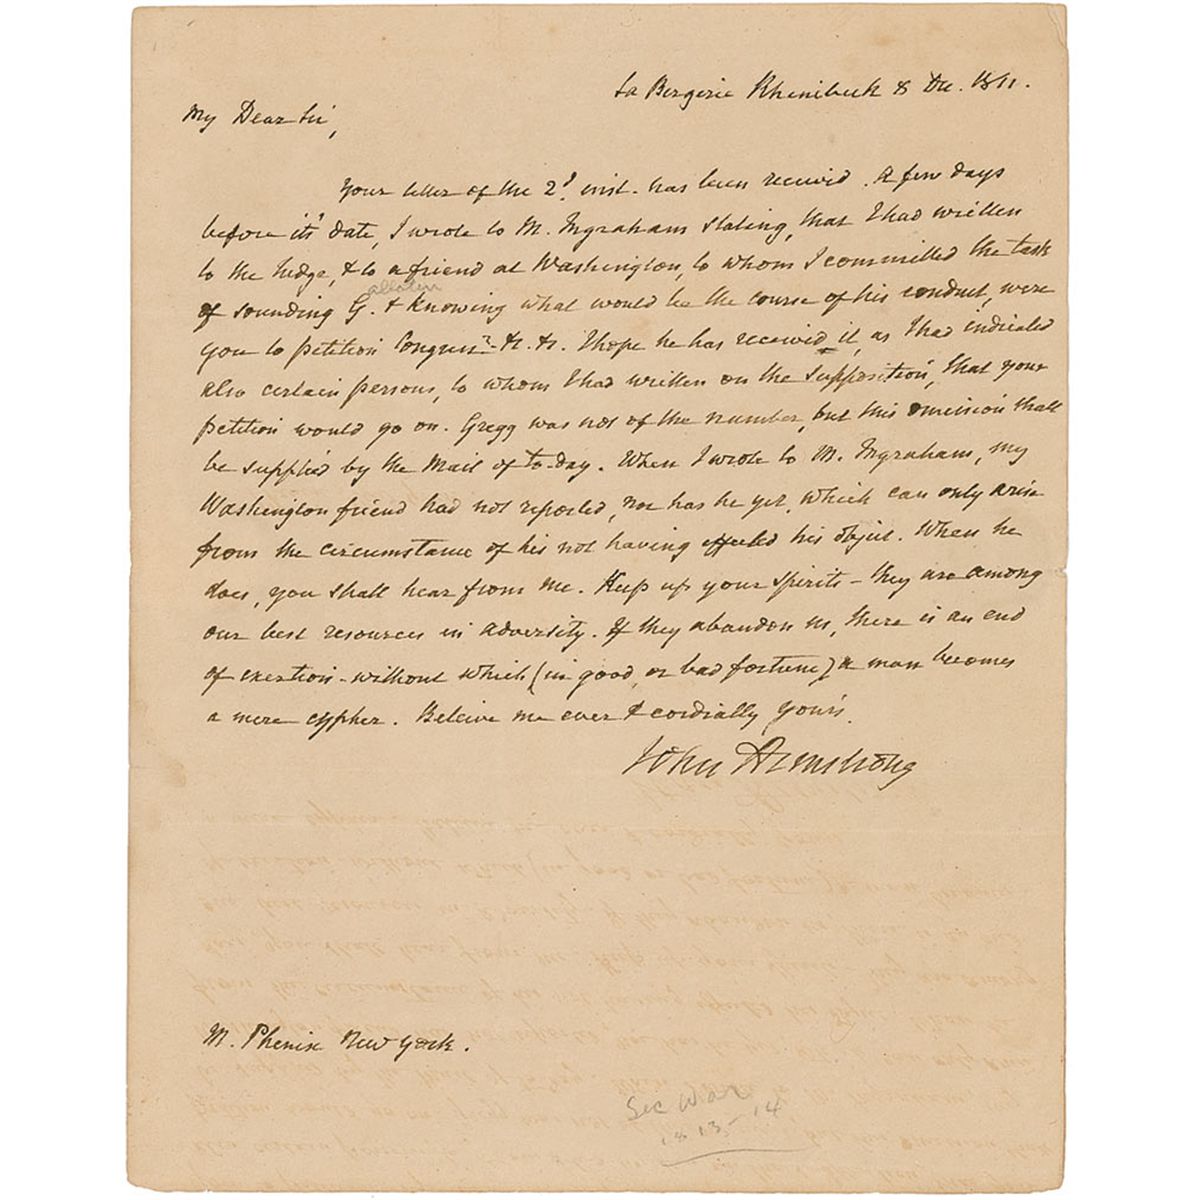 La Bergerie Rhinibeck 8 Dec. 1811.
My Dear Sir,
Your letter of the 2d. inst. has been received. A few days
before it's date, I wrote to M. Ingraham stating, that I had written
to the Judge, & to a friend at Washington, to whom I committed the task
allatin
of sounding G. & knowing what would be the course of his conduct, were
you to petition Congress &c. &c. I hope he has received it, as I had indicated
also certain persons, to whom I had written on the supposition, that your
petition would go on. Gregg was not of the number, but this omission shall
be supplied by the Mail of to-day. When I wrote to M. Ingraham, my
Washington friend had not reported, nor has he yet, which can only arise
from the circumstance of his not having effected his object. When he
does, you shall hear from me. Keep up your spirits - they are among
our best resources in adversity. If they abandon us, there is an end
of exertion - without which (in good, or bad fortune) a man becomes
a mere cypher. Beleive me ever & cordially yours.
John Armstrong
M. Phenix New York.
Sec War
1813-14